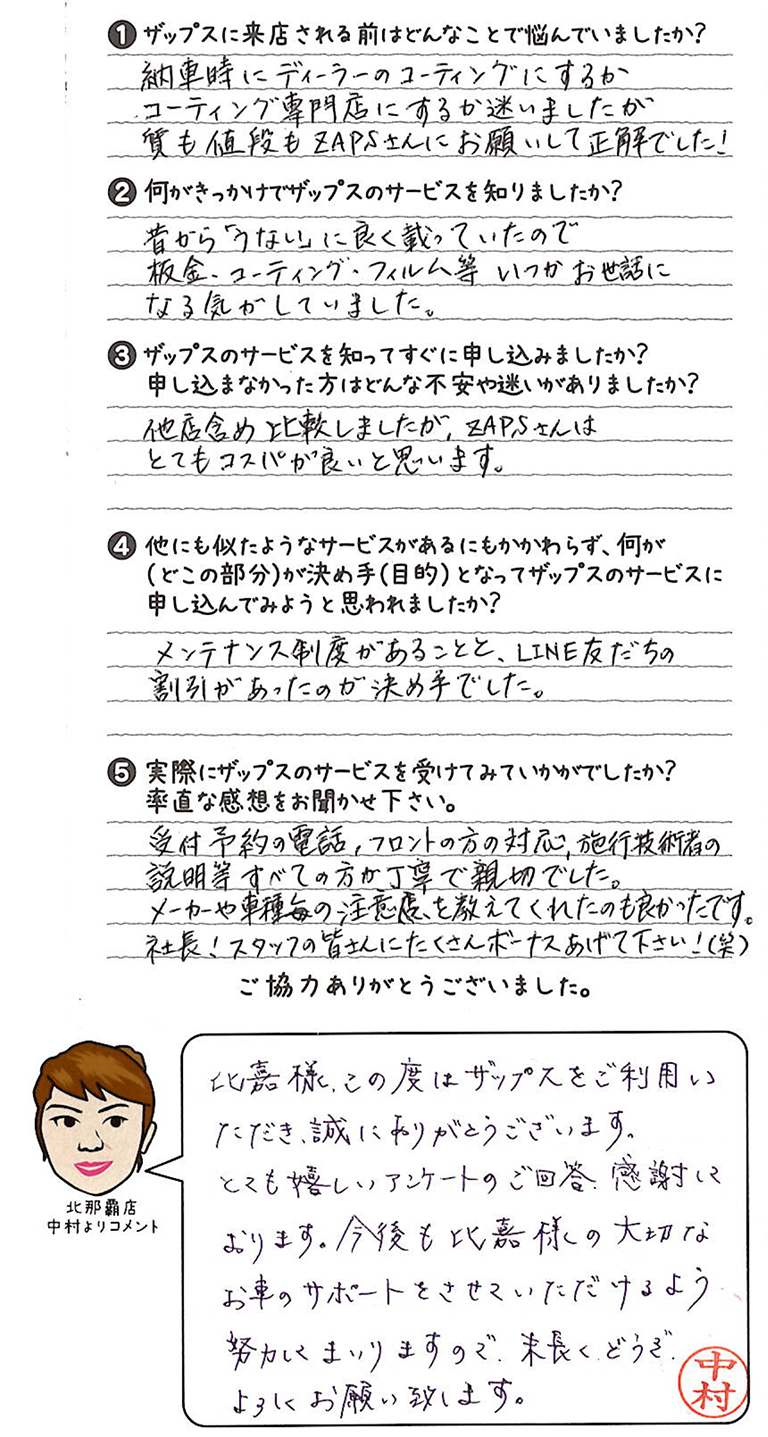 ❶ ザップスに来店される前はどんなことで悩んでいましたか?
納車時にディーラーのコーティングにするか
コーティング専門店にするか迷いましたが
質も値段もZAPSさんにお願いして正解でした!
❷ 何がきっかけでザップスのサービスを知りましたか?
昔から「うない」に良く載っていたので
板金・コーティング・フィルム等 いつかお世話に
なる気がしていました。
❸ ザップスのサービスを知ってすぐに申し込みましたか?
申し込まなかった方はどんな不安や迷いがありましたか?
他店含め比較しましたが、ZAPSさんは
とてもコスパが良いと思います。
❹ 他にも似たようなサービスがあるにもかかわらず、何が
(どこの部分)が決め手(目的)となってザップスのサービスに
申し込んでみようと思われましたか?
メンテナンス制度があることと、LINE友だちの
割引があったのが決め手でした。
❺ 実際にザップスのサービスを受けてみていかがでしたか?
率直な感想をお聞かせ下さい。
受付予約の電話,フロントの方の対応,施行技術者の
説明等すべての方が丁寧で親切でした。
メーカーや車種毎の注意点を教えてくれたのも良かったです。
社長!スタッフの皆さんにたくさんボーナスあげて下さい!(笑)
ご協力ありがとうございました。
比嘉様、この度はザップスをご利用い
ただき、誠にありがとうございます。
とても嬉しいアンケートのご回答、感謝して
おります。今後も比嘉様の大切な
お車のサポートをさせていただけるよう
努力してまいりますので、末長くどうぞ、
よろしくお願い致します。
中村
北那覇店
中村よりコメント